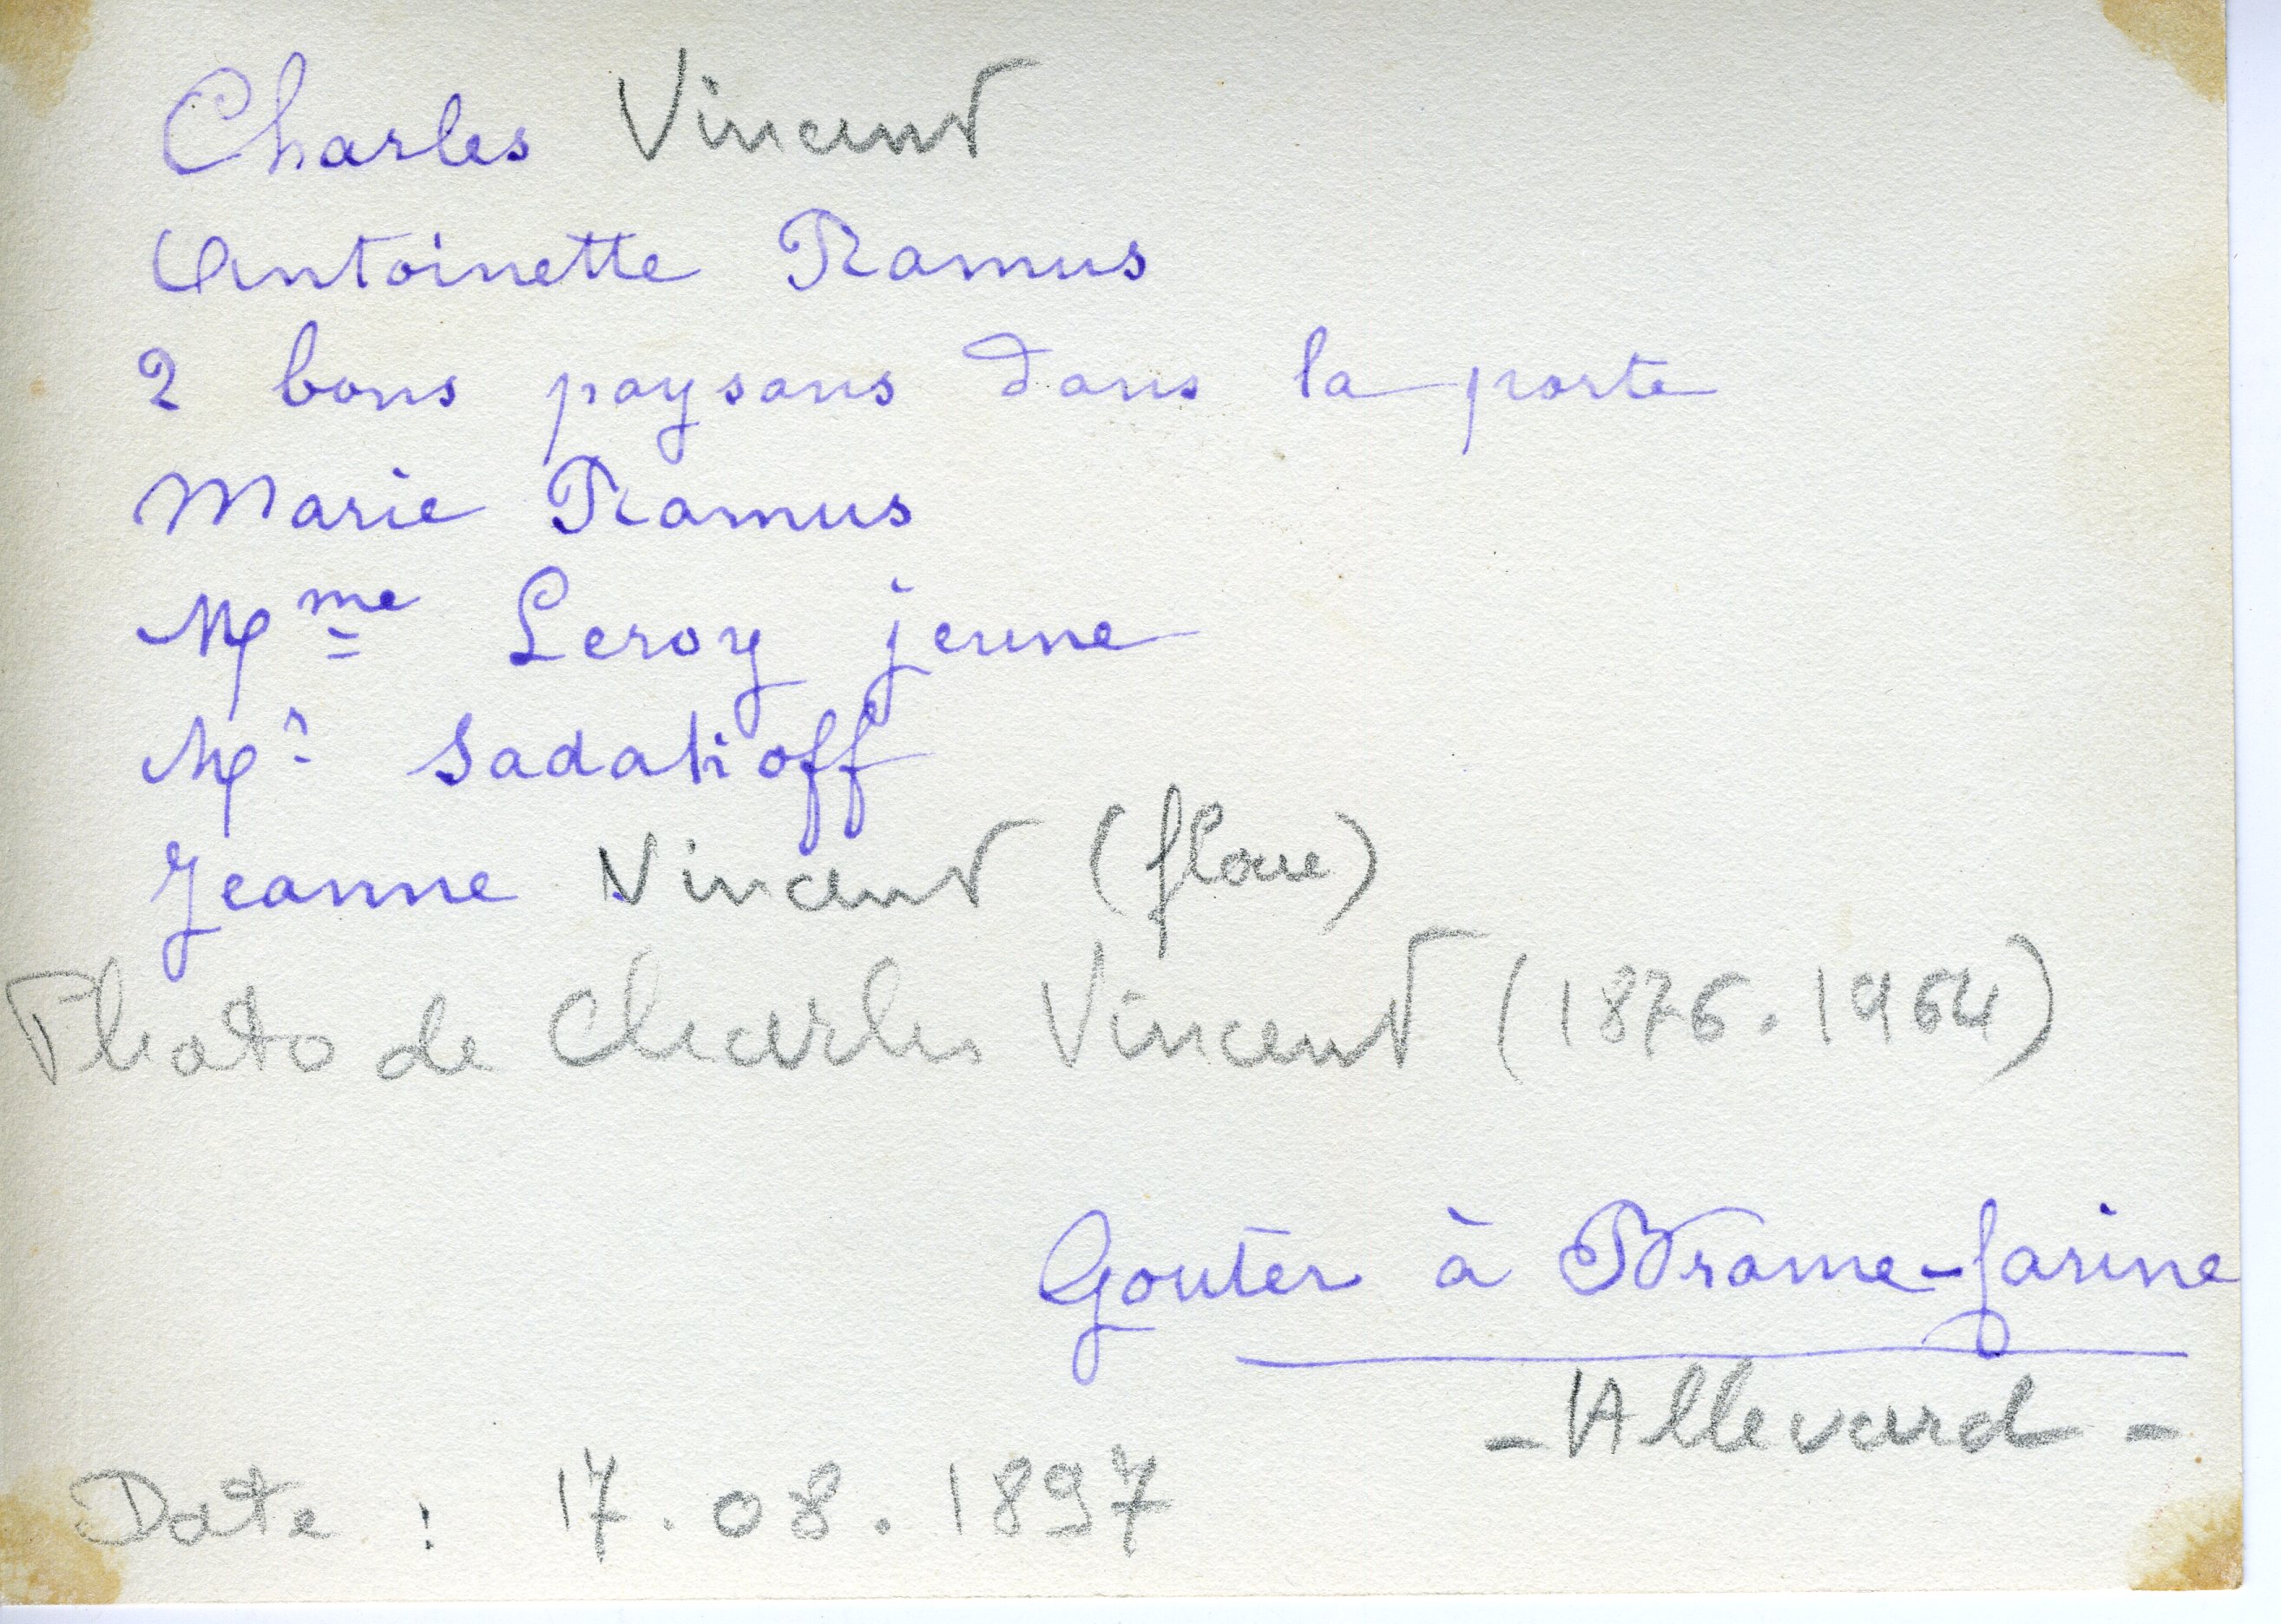 Charles Vincent
Antoinette Ramus
2 bons paysans dans la porte
Marie Ramus
Mme Leroy jeune
Mr Sadakoff
Jeanne Vincent (floue)
Photo de Charles Vincent (1876.1964)
Gouter à Brame-farine
- Allevard -
Date : 17.08.1897